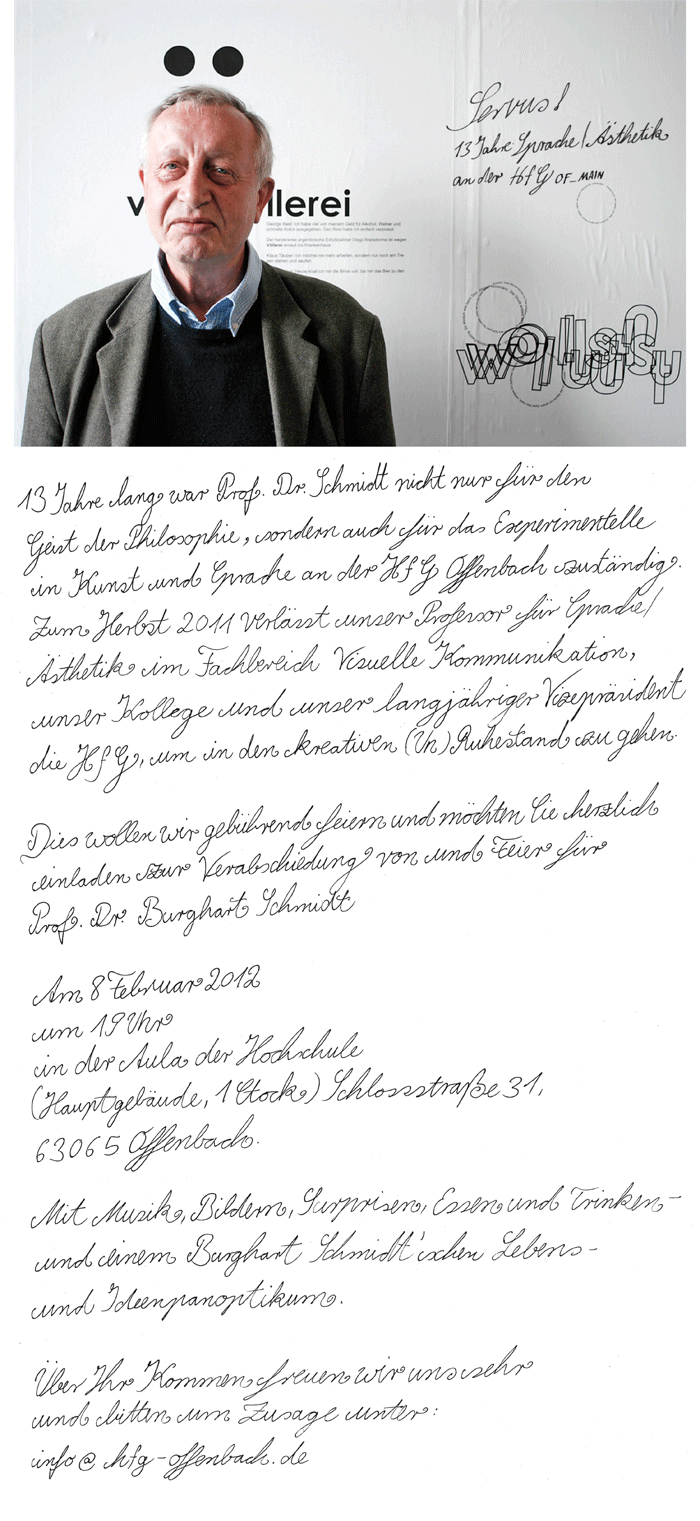 Servus!
13 Jahre Sprache/Ästhetik
an der HfG OF_MAIN
llerei
13 Jahre lang war Prof. Dr. Schmidt nicht nur für den
Geist der Philosophie, sondern auch für das Experimentelle
in Kunst und Sprache an der HfG Offenbach zuständig.
Zum Herbst 2011 verlässt unser Professor für Sprache/
Ästhetik im Fachbereich Visuelle Kommunikation,
unser Kollege und unser langjähriger Vizepräsident
die HfG, um in den kreativen (Un)Ruhestand zu gehen.
Dies wollen wir gebührend feiern und möchten Sie herzlich
einladen zur Verabschiedung von und Feier für
Prof. Dr. Burghart Schmidt
Am 8 Februar 2012
um 19 Uhr
in der Aula der Hochschule
(Hauptgebäude, 1 Stock) Schlossstraße 31,
63065 Offenbach.
Mit Musik, Bildern, Surprisen, Essen und Trinken-
und einem Burghart Schmidt'schen Lebens-
und Ideenpanoptikum.
Über Ihr Kommen freuen wir uns sehr
und bitten um Zusage unter:
info@hfg-offenbach.de